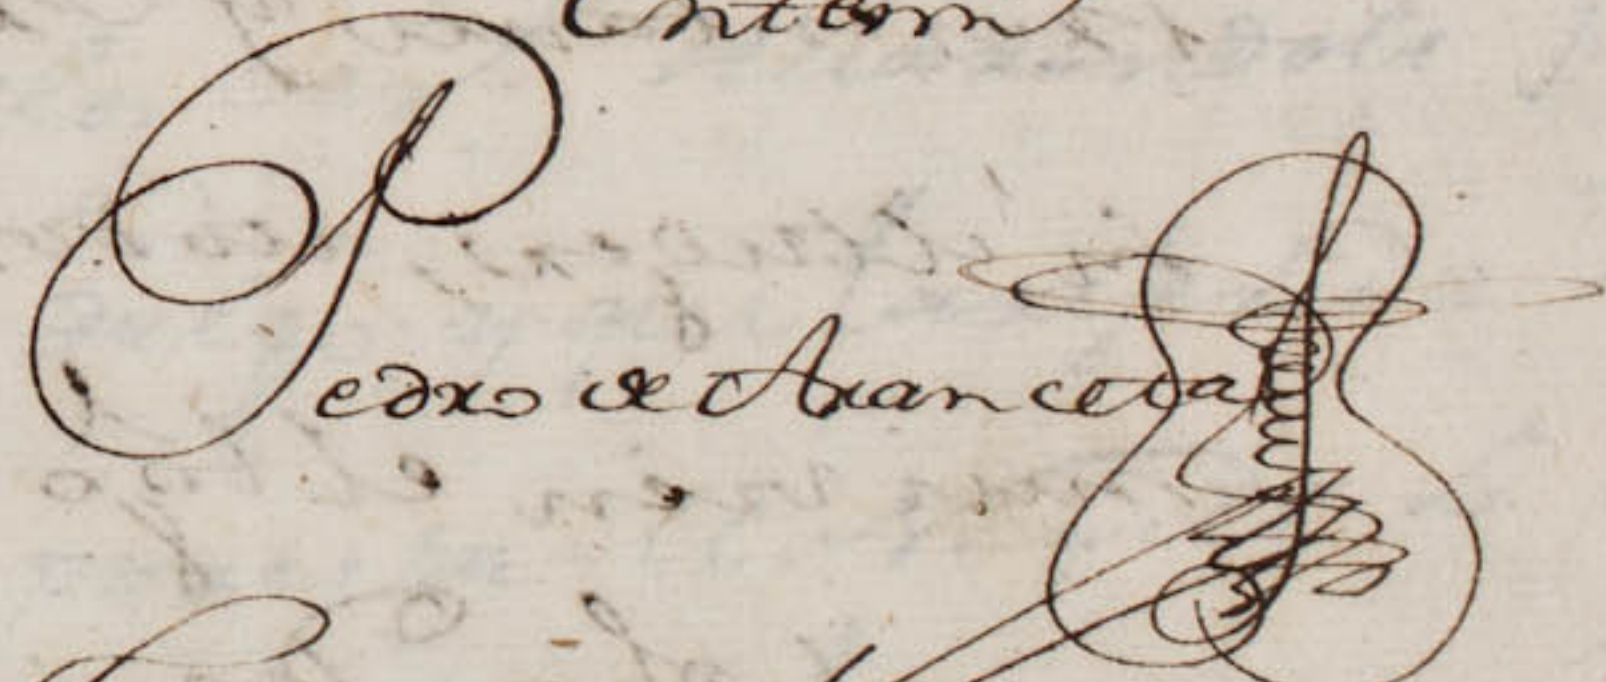 Pedro de Aranceta